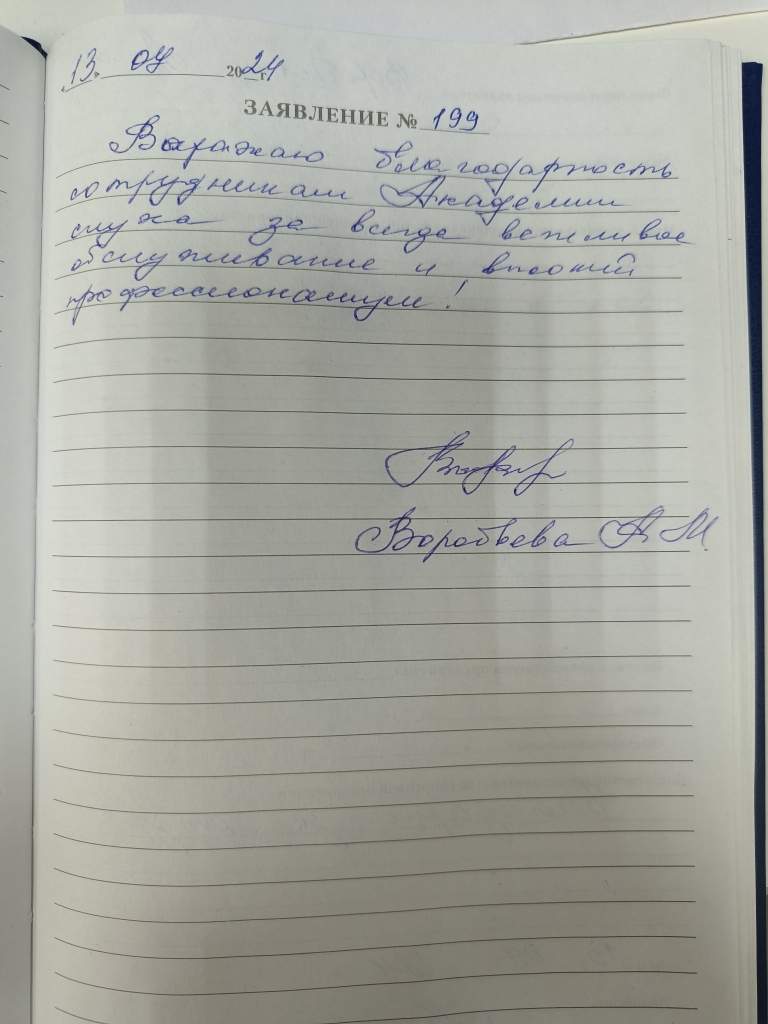 13. 04 2024 г.
ЗАЯВЛЕНИЕ № 199
Выражаю благодарность
сотрудникам Академии
слуха за всегда вежливое
обслуживание и высокий
профессионализм!
Воробьева А.М.